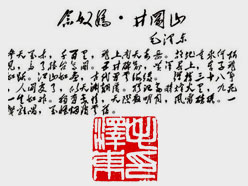 念奴嬌·井岡山
毛泽东
参天万木，千百里，飞上南天奇岳。故地重来何所
见，多了楼台亭阁。五井碑前，黄洋界上，车子飞
如跃。江山如画，古代曾云海绿。弹指三十八年
，人间变了，似天渊翻覆。犹记当时烽火里，九死
一生如昨。独有豪情，天际悬明月，风雷磅礴。一
声鸡唱，万怪烟消云落。
澤東